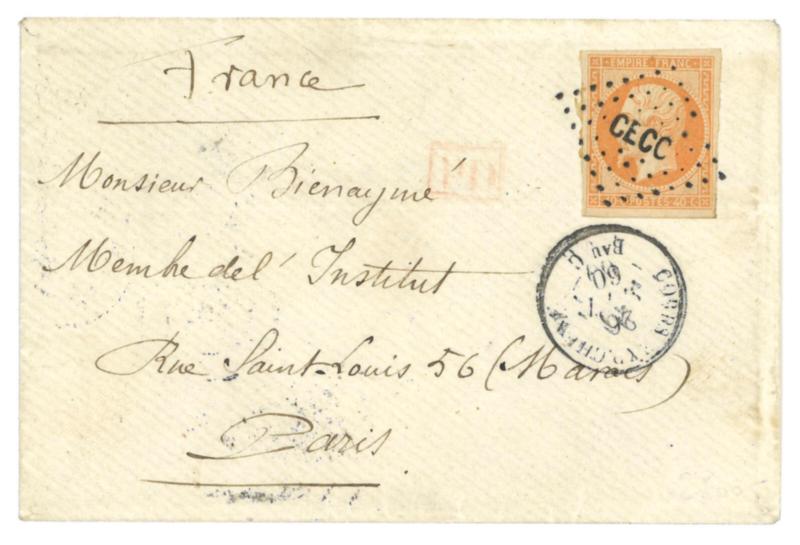 France
EMPIRE FRANC
CECC
POSTES 40 C
PD
Monsieur Bienaymé
Membre de l'Institut
Rue Saint-Louis 56 (Marais)
Paris
CORPS EXP. CHINE
Bau B
26
60